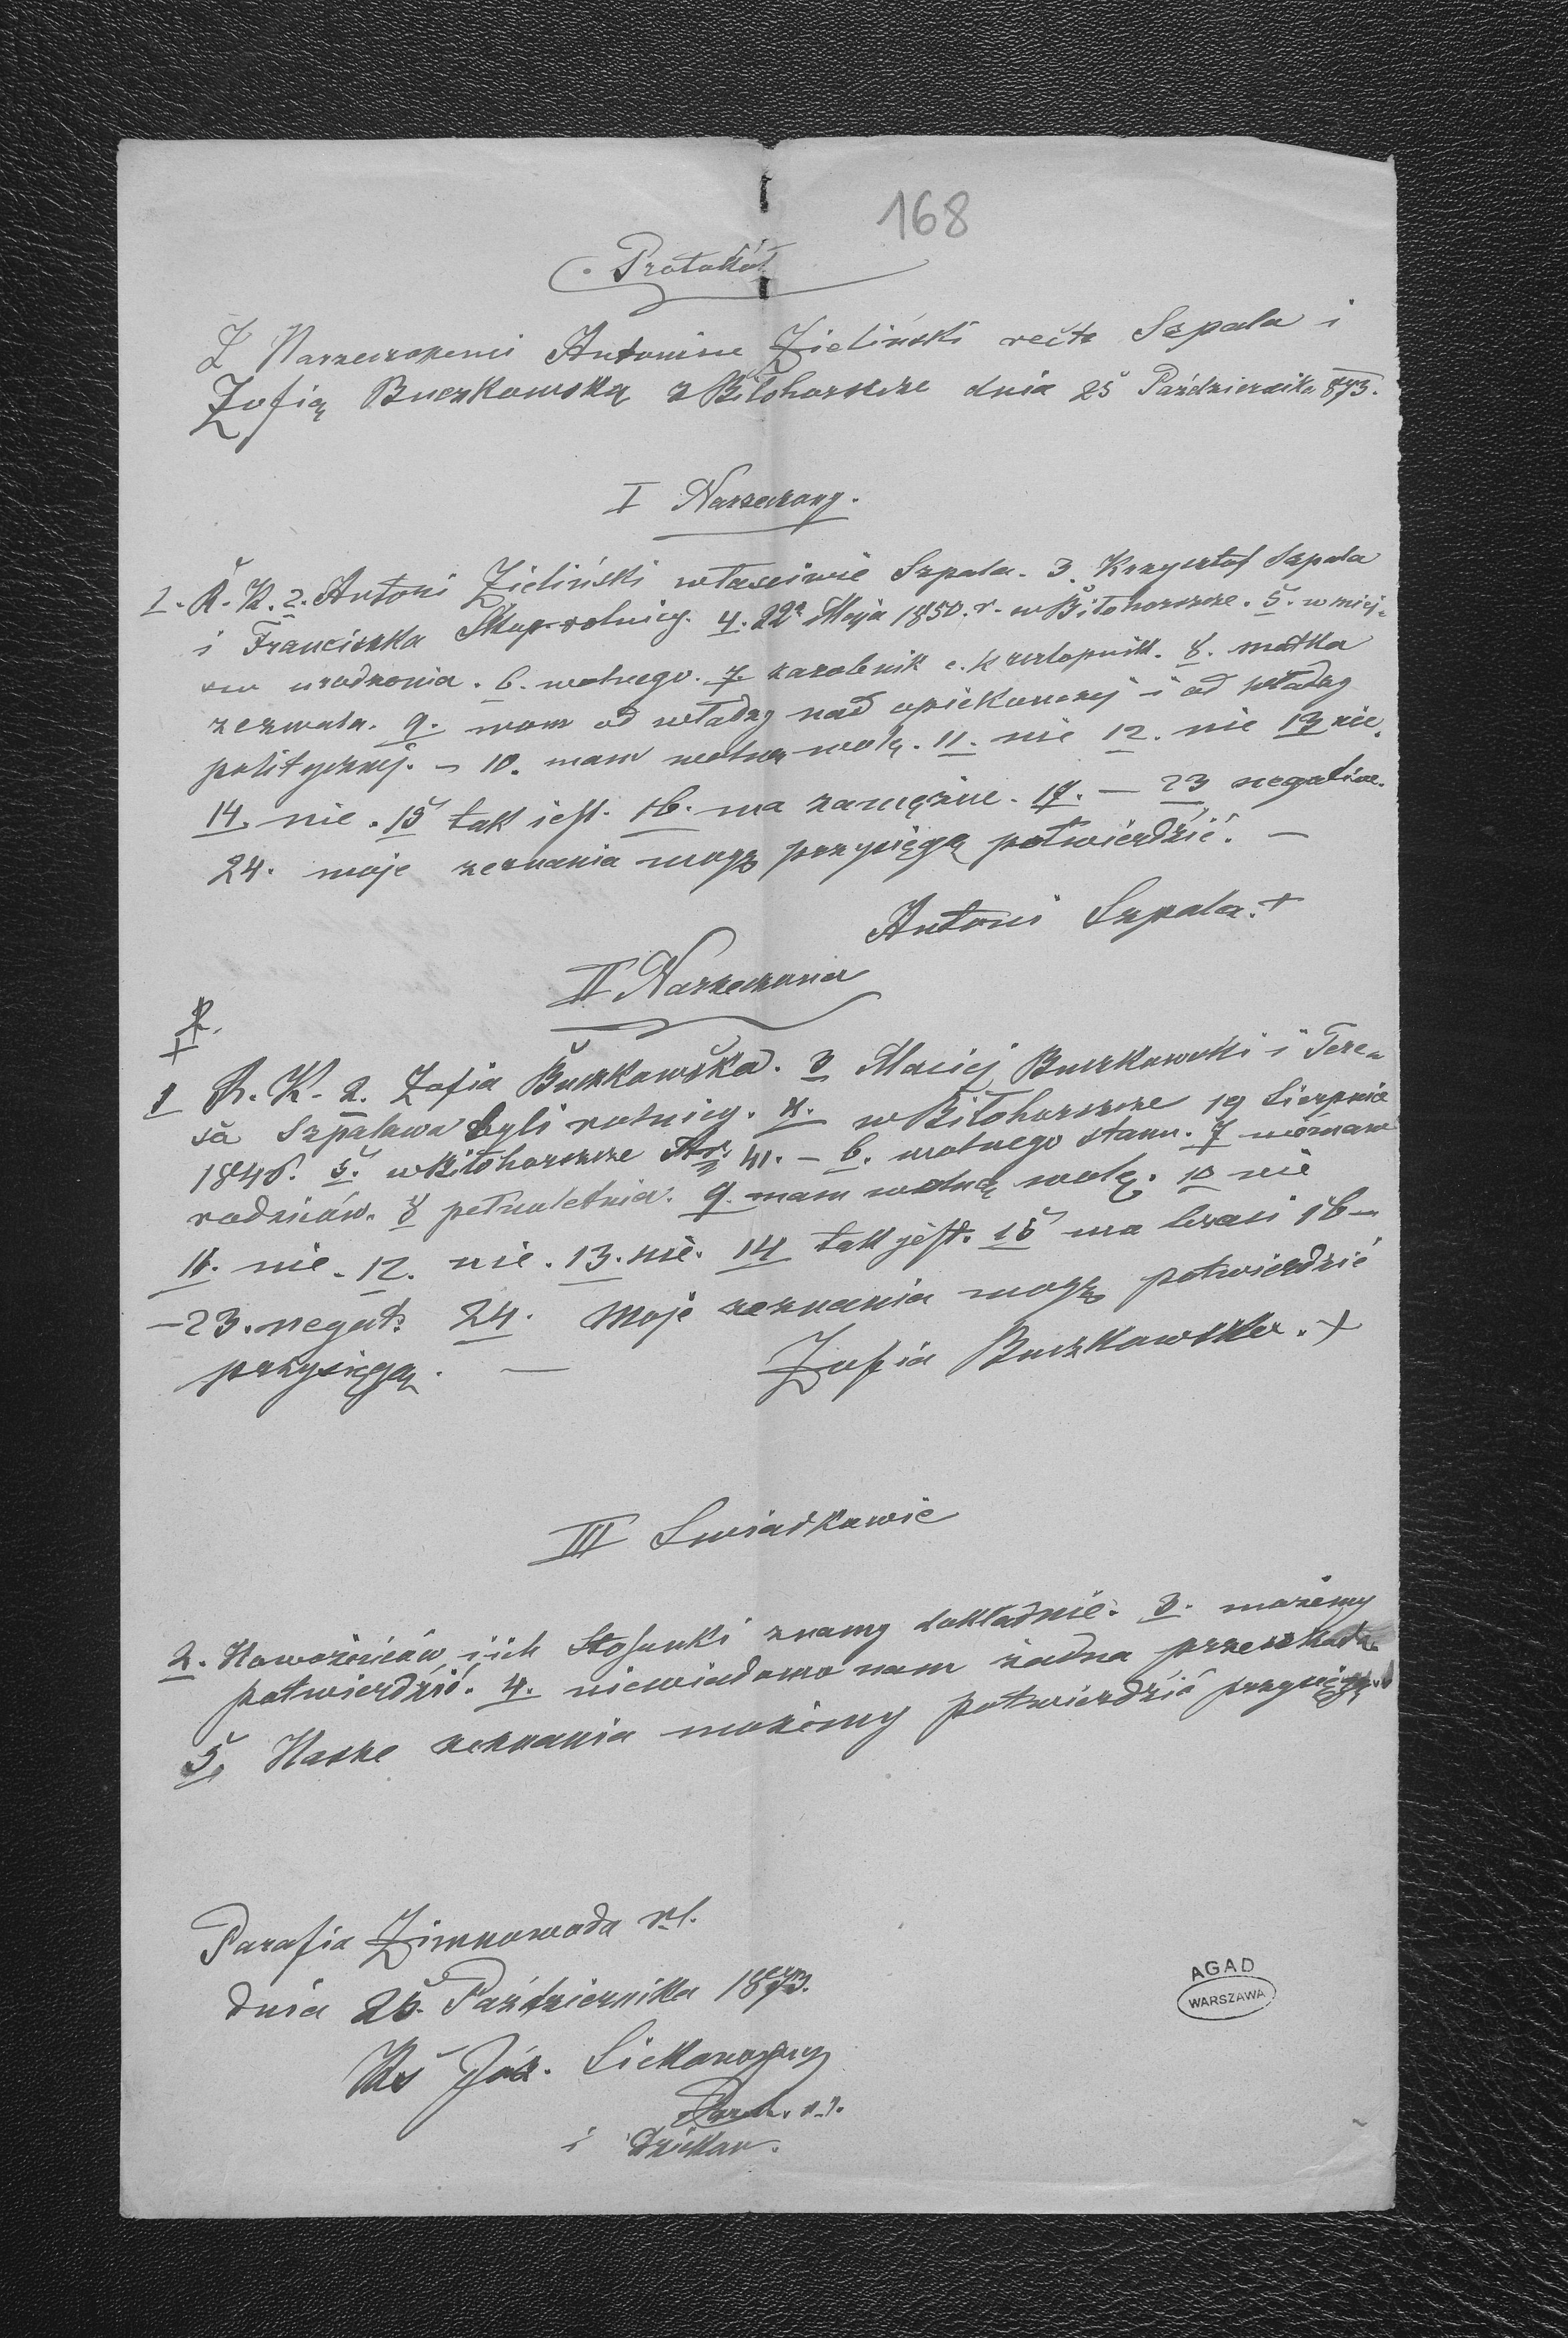 168
Protokół
Z Narzeczonemi Antonim Zieliński recte Szpala i
Zofią Buczkowską z Biłohorszcze dnia 25 Października 873.
I Narzeczony.
1. R. K. 2. Antoni Zieliński właściwie Szpala. 3. Krzysztof Szpala
i Franciszka Skop rolnicy. 4. 22 Maja 1850. r. w Biłohorszcze. 5. w miej-
scu urodzenia. 6. wolnego. 7. zarobnik 8. matka
zezwala. 9. mam od władzy nad opiekunczej i od władzy
politycznej. – 10. mam wolną wolę. 11. nie 12. nie 13 nie.
14. nie. 15 tak jest. 16. ma zamężne. 17. – 23 negative.
24. moje zeznania mogę przysięgą potwierdzić. –
Antoni Szpala. +
II Narzeczona
1 R. K. 2. Zofia Buczkowska. 3 Maciej Buczkowski i Tere-
sa Szpalowa byli rolnicy. 4. w Biłohorszcze 19 Sierpnia
1846. 5. w Biłohorszcze Nr. 41. – 6. wolnego stanu. 7 niemam
rodziców. 8 pełnoletnia. 9. mam wolną wolę. 10 nie
11. nie. 12. nie. 13. nie. 14 tak jest. 15 ma braci 16 –
– 23. negat. 24. Moje zeznania mogę potwierdzić
przysięgą. – Zofia Buczkowska. +
III Swiadkowie
2. Nowożeńców i ich Stosunki znamy dokładnie. 3. możemy
potwierdzić. 4. niewiadomo nam żadna przeszkoda
5. Nasze zeznania możemy potwierdzić przysięgą.
Parafia Zimnowoda r. l.
dnia 25. Października 1873.
Ks Józ.
i Dziekan.
AGAD
WARSZAWA